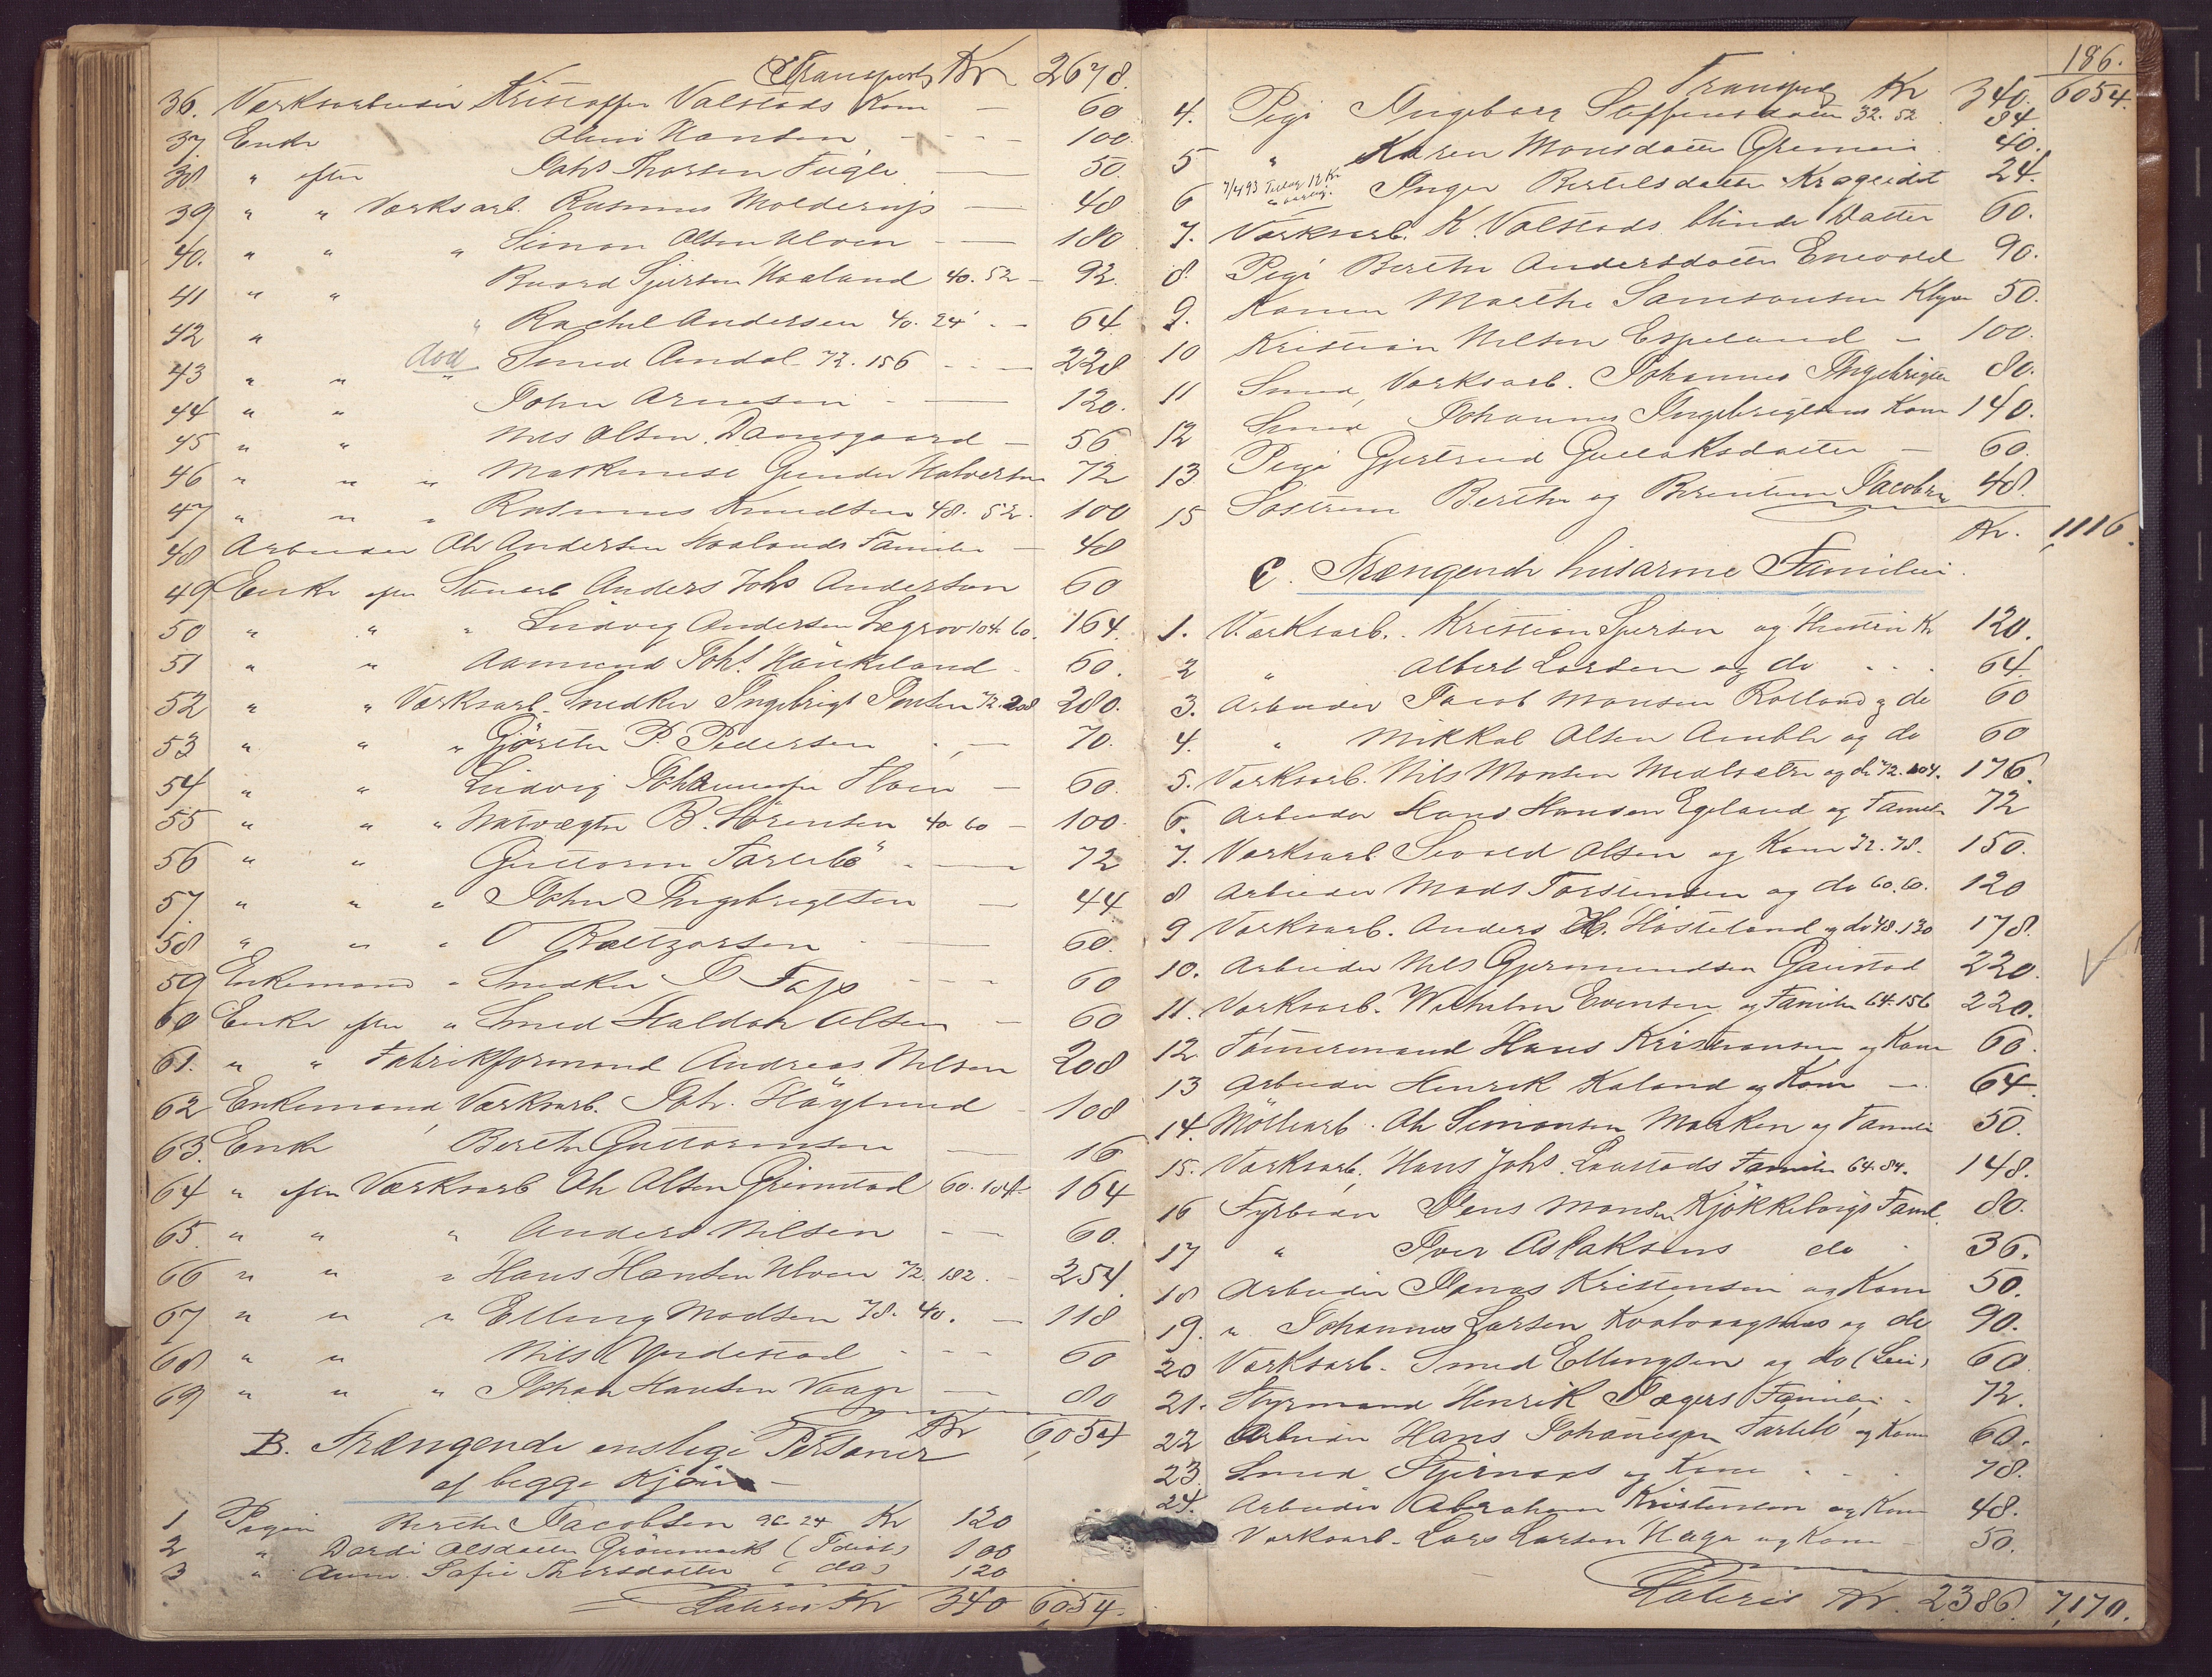 Transport Kr 2678.
36. Værksarbeider Kristoffer Valstads Kone — 60
37. Enke Oline Hansen - - - 100.
38 " efter Johs Thorsen Fugle — 50.
39 " " Værksarb. Rasmus Molderup — 48
40. " " " Simon Olsen Ulven - — 180
41 " " Baard Sjursen Haaland 40. 52 - 92.
42 " " Rachel Andersen 40. 24 - - 64
43 " " død Smed Amdal 72. 156 - - 228
44 " " John Arnesen - — 120.
45 " " Nils Olsen Damsgaard — 56
46 " " " Maskinist Gunder Halvorsen 72
47 " " " Rasmus Knudsen 48. 52. 100
48 Arbeider Ole Andersen Haalands Familie — 48
49 Enke efter Stuearb Anders Johs Anderson 60
50 " " " Ludvig Andersen Lægrov 104. 60. 164.
51 " " Aamund Johs. Haukeland - 60.
52 " " Værksarb. Snedker Ingebrigt Jensen 72. 208 280.
53 " " " Gjörtler P. Pedersen - — 70.
54 " " Ludvig Johannesen Floen — 60.
55 " " " Natvægter B. Sörensen 40 60 — 100.
56 " " Guttorm Farlibö - — 72
57. " " " John Ingebrigtsen — 44
58 " " " O Baltzersen - — 60.
59 Enkemand " Snedker J Fajo - - - 60
60 Enke efter " Smed Haldor Olsen — 60
61. " " Fabrikformand Andreas Nilsen 208
62 Enkemand, Værksarb. Joh. Höglund - 108
63. Enke Berthe Guttormsen — 16
64 " efter Værksarb Ole Olsen Grimstad 60. 104. 164
65. " " " Anders Nilsen - — 60.
66 " " " Hans Hansen Ulven 72. 182. - 254.
67 " " " Elling Madsen 78. 40. — 118
68 " " Nils Yndestad - - - 60
69 " " " Johan Hansen Vaage — 80
Kr 6054
B. Trængende enslige Personer
af begge Kjön —
1 Pigen Berthe Jacobsen 96 24 Kr 120
2 " Dordi Olsdatter Grönmark (Idiot) 100
3 " Anne Sofie Thorsdatter (do) 120
Lateris Kr 340 6054.
186.
Transport Kr 340. 6054.
4. Pige Ingeborg Steffensdatter 32. 52 84.
5 " Karen Monsdatter Gremmen 40.
6 7/4 93 Tillæg 12 Kr aarlig. Inger Bertelsdatter Krageidet 24.
7. Værksarb. K. Valstads blinde Datter 60.
8. Pige Berthe Andersdatter Enevold 90.
9. Konen Marthe Samsonsen Klyve 50.
10 Kristian Nilsen Espeland — 100.
11 Smed, Værksarb. Johannes Ingebrigtsen 80.
12 Smed Johannes Ingebrigtsens Kone 140.
13 Pige Gjertrud Gullaksdatter — 60.
15 Söstrene Berthe og Berentine Jacobsen 48.
Kr. 1116.
C. Trængende husarme Familier.
1. Værksarb. Kristian Sjursen og Hustru Kr 120.
2 " Albert Larsen og do - - - 64.
3. Arbeider Jacob Monsen Rolland og do 60
4. " Mikkal Olsen Amble og do 60
5. Værksarb. Nils Monsen Midtsæter og do 72. 104. 176.
6. Arbeider Hans Hansen Egeland og Familie 72
7. Værksarb. Sivald Olsen og Kone 72. 78. 150.
8 Arbeider Mads Torstensen og do 60. 60. 120
9 Værksarb. Anders H. Hosteland og do 48. 130 178.
10. Arbeider Nils Gjermundsen Gaustad 220.
11. Værksarb. Wilhelm Evensen og Familie 64. 156 220.
12. Tömmermand Hans Kristiansen og Kone 60.
13 Arbeider Henrik Kaland og Kone — 64.
14. Möllearb. Ole Simonsen Marken og Familie 50.
15. Værksarb. Hans Johs. Laustads Familie 64. 84. 148.
16 Fyrböder Jens Monsen Kjökkelvigs Famil. 80.
17 " Iver Aslaksens do - 36.
18 Arbeider Jonas Kristensen og Kone 50.
19. " Johannes Larsen Kvalvaagsnes og do 90.
20 Værksarb. Smed Ellingsen og do (Leie) 60
21. Styrmand Henrik Jægers Familie - 72.
22 Arbeider Hans Johannesen Farlibö og Kone 60.
23 Smed Stjernaas og Kone - - - 78.
24. Arbeider Abraham Kristensen og Kone 48.
Værksarb. Lars Larsen Hage og Kone - 50.
Lateris Kr. 2386. 7,170.